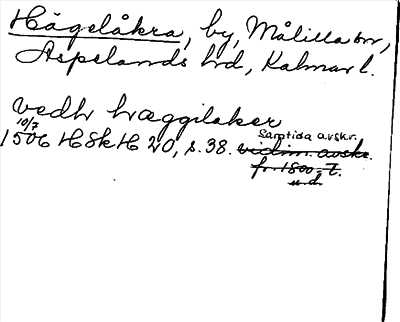 Hägelåkra, by, Målilla sn,
Aspelands hd, Kalmar l.
vedh hræggilaker
10/7
1506 HSkH 20, s. 38. vidim. avskr.
Samtida avskr.
fr. 1800-t.
u.d.